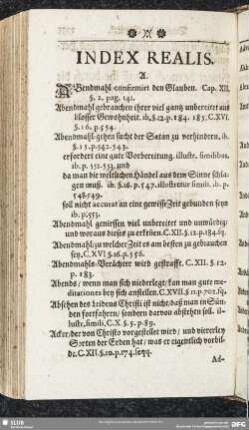 INDEX REALIS.
A.
ABendmahl confirmiret den Glauben. Cap. XII.
§. 2. pag. 141.
Abendmahl gebrauchen ihrer viel gantz unbereitet aus
blosser Gewohnheit. ib. §.12. p. 184. 185. C. XVI
§. 16. p. 554.
Abendmahl-gehen sucht der Satan zu verhindern, ib.
§. 15. p. 542. 543.
erfordert eine gute Vorbereitung, illustr. similibus,
ib. p. 552. 553. und
da man die weltlichen Händel aus dem Sinne schla-
gen muß. ib. §. 16. p. 547. illustratur simili. ib. p.
548. 549.
soll nicht accurat an eine gewisse Zeit gebunden seyn
ib. p. 553.
Abendmahl geniessen viel unbereitet und unwürdig/
und woraus dieses zu erkennen. C. XII. §. 12. p. 184. sq.
Abendmahl/zu welcher Zeit es am besten zu gebrauchen
sey, C. XVI §. 16. p. 556.
Abendmahls-Verächter wird gestrafft. C. XII. §. 12.
p. 183.
Abends/ wenn man sich niederlegt/ kan man gute me-
ditationes bey sich anstellen. C. XVII. §. 11. p. 702. sq.
Abschen des Leidens Christi ist nicht/ daß man in Sün-
den fortfahren/ sondern davon abstehen soll. il-
lustr. simili, C. X. §. 5. p. 89.
Acker/ der von Christo vorgestellet wird/ und viererley
Sorten der Erden hat/ was er eigentlich vorbil-
de. C. XII. §. 10. p. 174. seqq.
Ad-
SLUB